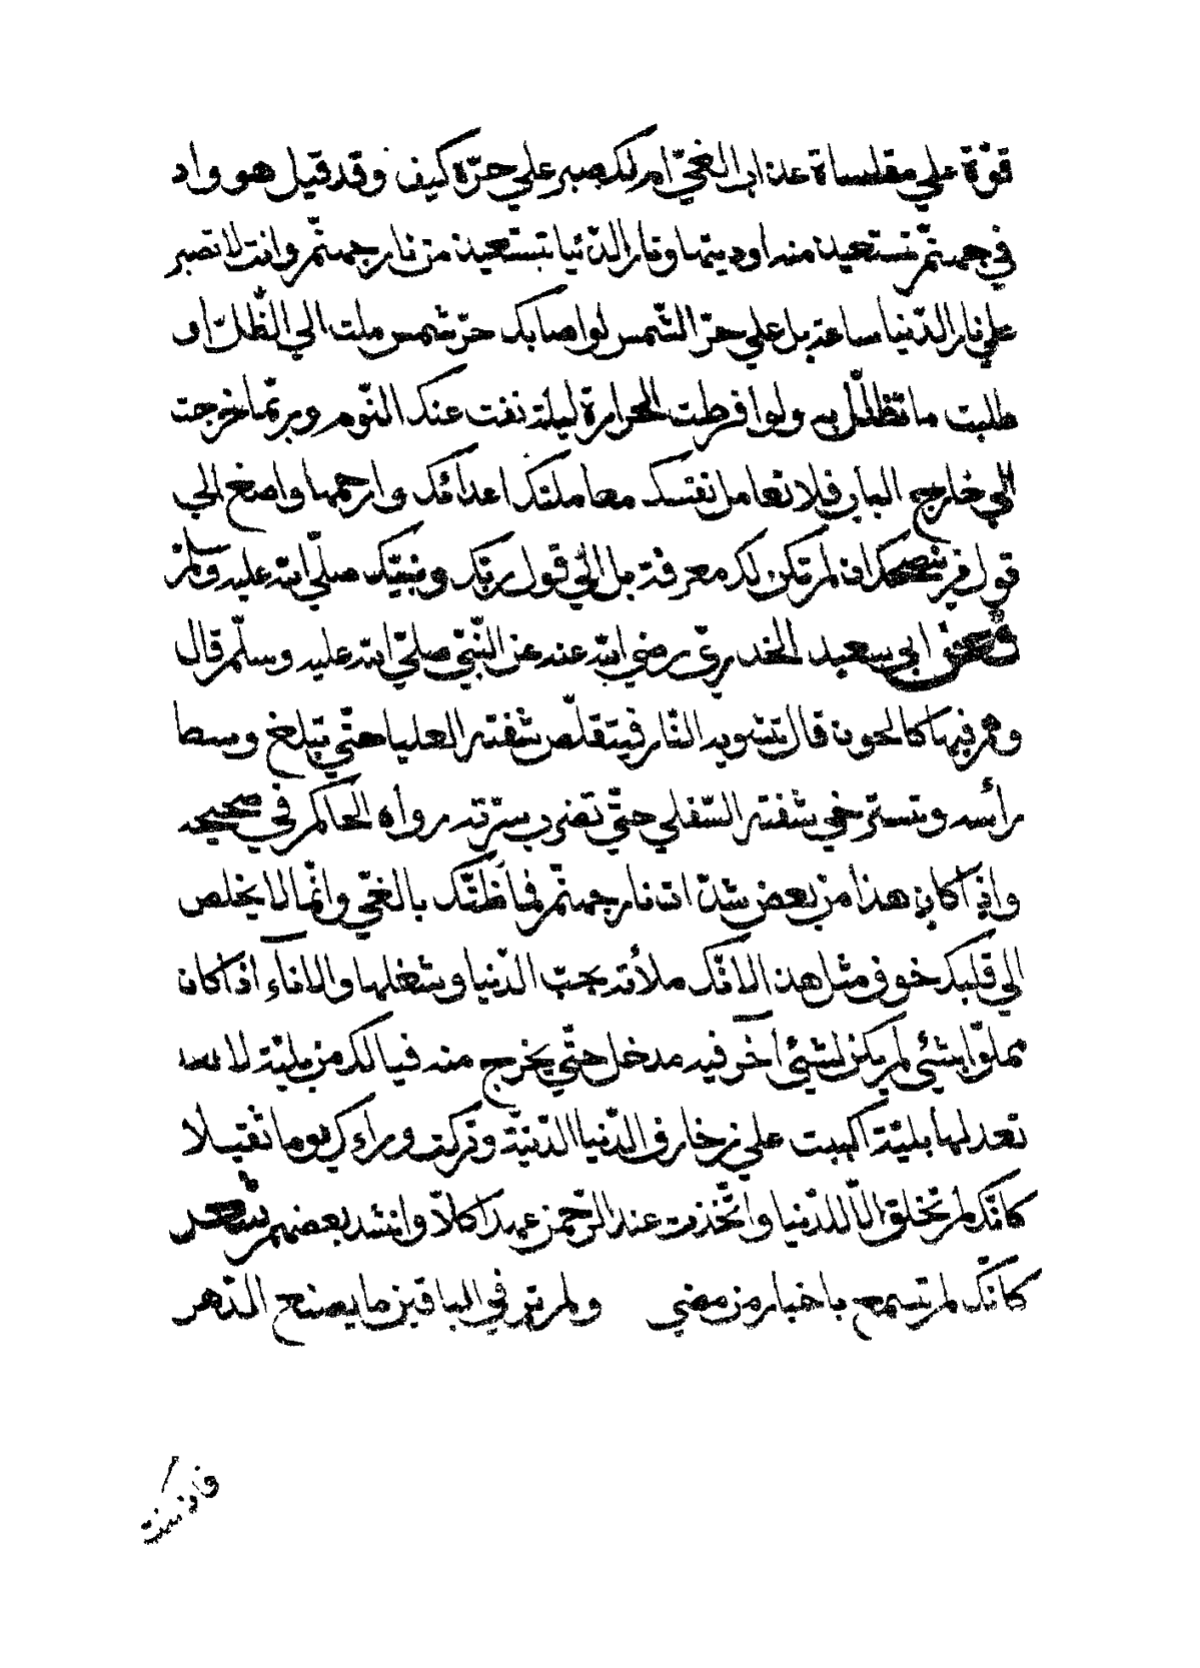 قوّة علي مقاساة عذاب الغيّ ام لك صبر علي حرّه كيف وقد قيل هو واد
في جهنّم تستعيذ منه اوديتها ونار الدّنيا تستعيذ من نار جهنّم وانت لا تصبر
علي نار الدّنيا ساعة بل علي حرّ الشّمس لو اصابك حرّ شمس ملت الي الظّلّ او
طلبت ما تظلّل به ولو افرطت الحرارة ليلة نفت عنك النّوم وربّما خرجت
الي خارج الباب فلا تعامل نفسك معاملتك اعدائك وارحمها واصغ الي
قول من ينصحك ان لم تكن لك معرفة بل الي قول ربّك ونبيّك صلّي الله عليه وسلّم
فعن ابي سعيد الخدريّ رضي الله عنه عن النّبيّ صلّي الله عليه وسلّم قال
وهم فيها كالحون قال تشويه النّار فيتقلّص شفته العليا حتّي يبلغ وسط
رأسه وتسترخي شفته السّفلي حتّي تضرب سرّته رواه الحاكم في صحيحه
واذا كان هذا من بعض شدّة نار جهنّم فما ظنّك بالغيّ وانّما لا يخلص
الي قلبك خوف مثل هذا لانّك ملأته بحبّ الدّنيا وشغلها والاناء اذا كان
مملوّا بشئي لم يكن لشئي آخر فيه مدخل حتّي يخرج منه فيا لك من بليّة لا
تعد لها بليّة اكببت علي زخارف الدّنيا الدّنيّة وتركت وراءك يوما ثقيلا
كانّك لم تخلق الّا للدّنيا واتّخذت عند الرّحمن عهدا كلّا وانشد بعضهم شعر
كانّك لم تسمع باخبار من مضي ولم تر في الباقين ما يصنع الدّهر
فان كنت